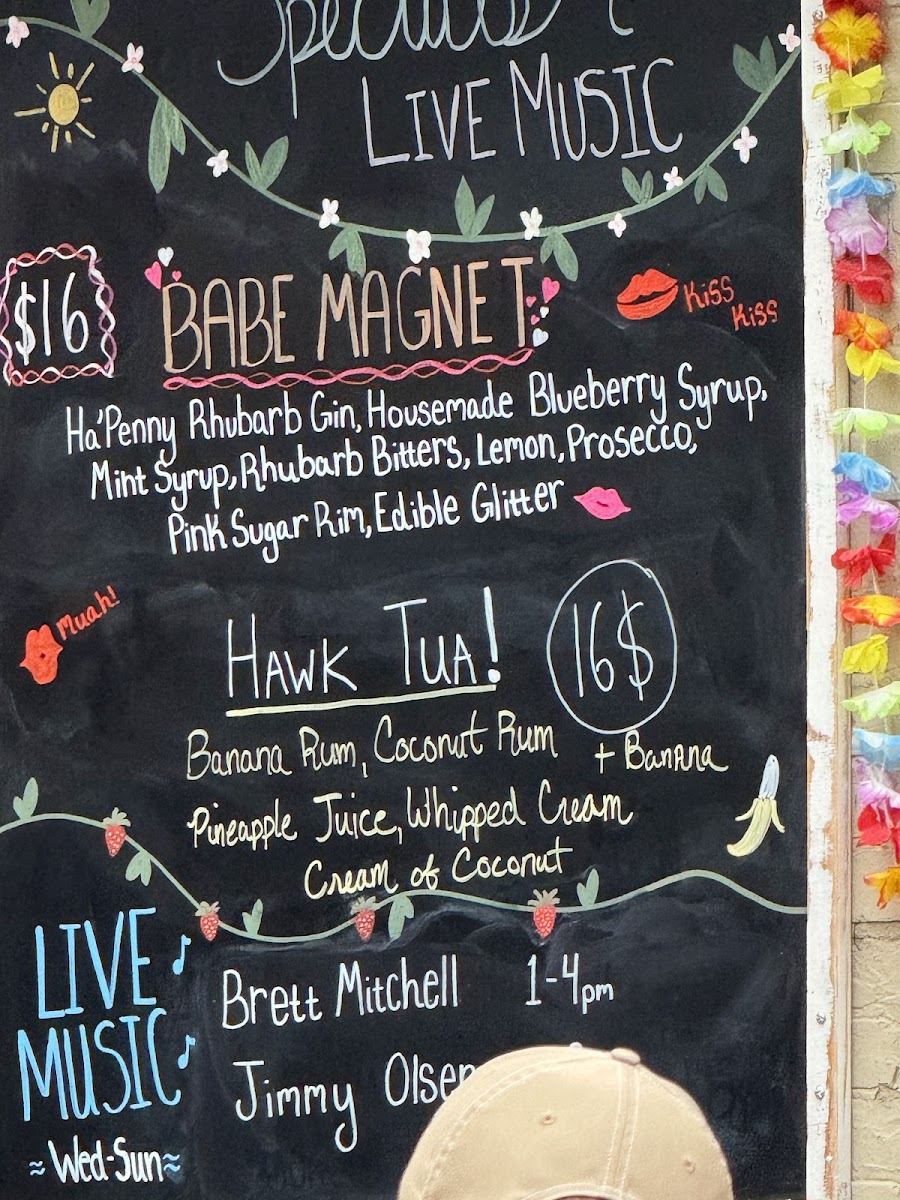 Specials &
LIVE MUSIC
$16
BABE MAGNET
Kiss
Kiss
Ha'Penny Rhubarb Gin, Housemade Blueberry Syrup,
Mint Syrup, Rhubarb Bitters, Lemon, Prosecco,
Pink Sugar Rim, Edible Glitter
Muah!
HAWK TUA!
16$
Banana Rum, Coconut Rum
+ Banana
Pineapple Juice, Whipped Cream
Cream of Coconut
LIVE
MUSIC
~Wed-Sun~
Brett Mitchell 1-4pm
Jimmy Olsen